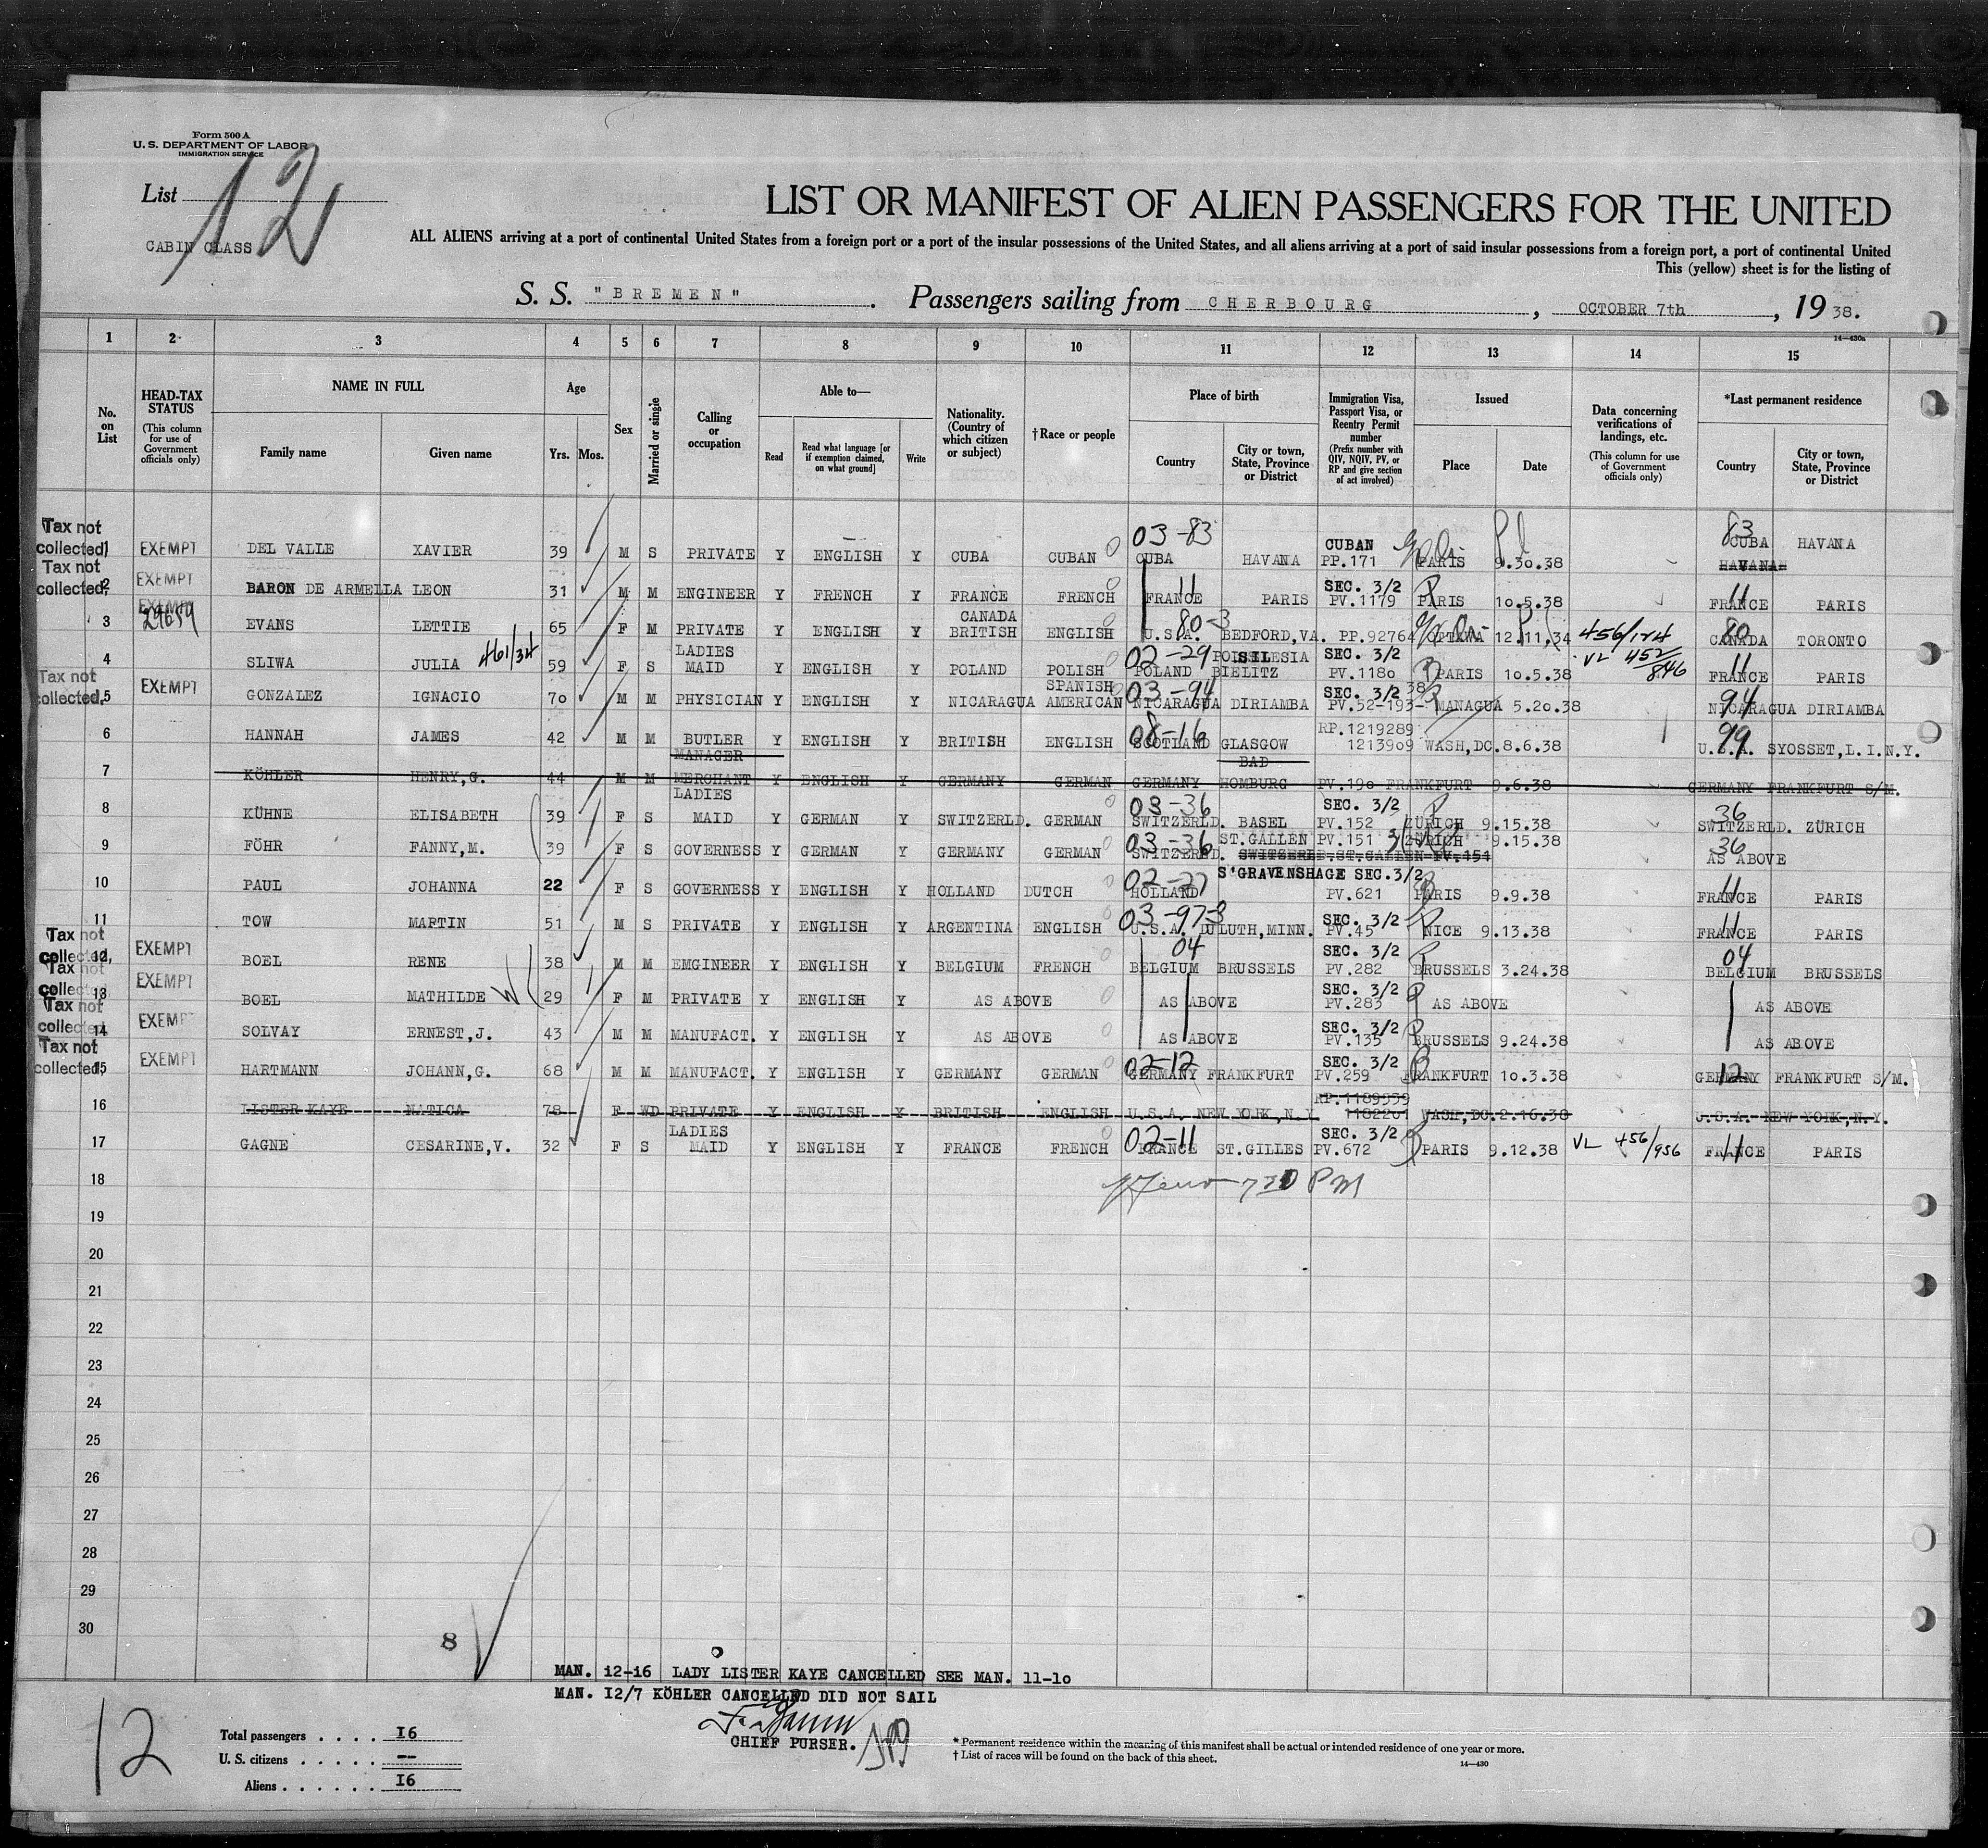 Form 500 A
U. S. DEPARTMENT OF LABOR
IMMIGRATION SERVICE
List 12
CABIN CLASS
LIST OR MANIFEST OF ALIEN PASSENGERS FOR THE UNITED
ALL ALIENS arriving at a port of continental United States from a foreign port or a port of the insular possessions of the United States, and all aliens arriving at a port of said insular possessions from a foreign port, a port of continental United
This (yellow) sheet is for the listing of
S. S. "BREMEN". Passengers sailing from CHERBOURG, OCTOBER 7th, 1938.
14—430a
1 2 3 4 5 6 7 8 9 10 11 12 13 14 15
No. on List
HEAD-TAX STATUS (This column for use of Government officials only)
NAME IN FULL
Family name Given name
Age
Yrs. Mos.
Sex
Married or single
Calling or occupation
Able to—
Read
Read what language [or if exemption claimed, on what ground]
Write
Nationality. (Country of which citizen or subject)
†Race or people
Place of birth
Country
City or town, State, Province or District
Immigration Visa, Passport Visa, or Reentry Permit number (Prefix number with QIV, NQIV, PV, or RP and give section of act involved)
Issued
Place Date
Data concerning verifications of landings, etc. (This column for use of Government officials only)
*Last permanent residence
Country
City or town, State, Province or District
Tax not collected 1 EXEMPT DEL VALLE XAVIER 39 M S PRIVATE Y ENGLISH Y CUBA CUBAN 03-83 CUBA HAVANA CUBAN PP.171 PARIS 9.30.38 83 CUBA HAVANA
HAVANA
Tax not collected 2 EXEMPT BARON DE ARMELLA LEON 31 M M ENGINEER Y FRENCH Y FRANCE FRENCH 11 FRANCE PARIS SEC. 3/2 PV.1179 PARIS 10.5.38 11 FRANCE PARIS
3 EXEMPT 29659 EVANS LETTIE 65 F M PRIVATE Y ENGLISH Y CANADA BRITISH ENGLISH 80-3 U.S.A. BEDFORD,VA. PP.92764 OTTAWA 12.11.34 456/124 80 CANADA TORONTO
4 SLIWA JULIA 461/34 59 F S LADIES MAID Y ENGLISH Y POLAND POLISH 02-29 POLAND BIELITZ SILESIA SEC. 3/2 PV.1180 PARIS 10.5.38 VL 452/846 11 FRANCE PARIS
Tax not collected 5 EXEMPT GONZALEZ IGNACIO 70 M M PHYSICIAN Y ENGLISH Y NICARAGUA SPANISH AMERICAN 03-94 NICARAGUA DIRIAMBA SEC. 3/2 38 PV.52-193- MANAGUA 5.20.38 94 NICARAGUA DIRIAMBA
6 HANNAH JAMES 42 M M BUTLER Y ENGLISH Y BRITISH ENGLISH 08-16 SCOTLAND GLASGOW RP.1219289 1213909 WASH,DC.8.6.38 99 U.S.A. SYOSSET,L.I.N.Y.
7 KÖHLER HENRY,G. 44 M M MANAGER MERCHANT Y ENGLISH Y GERMANY GERMAN GERMANY BAD HOMBURG PV.190 FRANKFURT 9.6.38 GERMANY FRANKFURT S/M.
8 KÜHNE ELISABETH 39 F S LADIES MAID Y GERMAN Y SWITZERLD. GERMAN 03-36 SWITZERLD. BASEL SEC. 3/2 PV.152 ZÜRICH 9.15.38 36 SWITZERLD. ZÜRICH
9 FÖHR FANNY,M. 39 F S GOVERNESS Y GERMAN Y GERMANY GERMAN 03-36 SWITZERD. ST.GALLEN PV.151 ZÜRICH 9.15.38 36 AS ABOVE
SWITZERLD.ST.GALLEN PV.151
10 PAUL JOHANNA 22 F S GOVERNESS Y ENGLISH Y HOLLAND DUTCH 02-27 HOLLAND S'GRAVENSHAGE SEC.3/2 PV.621 PARIS 9.9.38 11 FRANCE PARIS
11 TOW MARTIN 51 M S PRIVATE Y ENGLISH Y ARGENTINA ENGLISH 03-97-3 U.S.A. DULUTH,MINN. SEC. 3/2 PV.45 NICE 9.13.38 11 FRANCE PARIS
Tax not collected 12 EXEMPT BOEL RENE 38 M M EMGINEER Y ENGLISH Y BELGIUM FRENCH 04 BELGIUM BRUSSELS SEC. 3/2 PV.282 BRUSSELS 3.24.38 04 BELGIUM BRUSSELS
Tax not collected 13 EXEMPT BOEL MATHILDE W 29 F M PRIVATE Y ENGLISH Y AS ABOVE AS ABOVE SEC. 3/2 PV.283 AS ABOVE AS ABOVE
Tax not collected 14 EXEMPT SOLVAY ERNEST,J. 43 M M MANUFACT. Y ENGLISH Y AS ABOVE AS ABOVE SEC. 3/2 PV.135 BRUSSELS 9.24.38 AS ABOVE
Tax not collected 15 EXEMPT HARTMANN JOHANN,G. 68 M M MANUFACT. Y ENGLISH Y GERMANY GERMAN 02-12 GERMANY FRANKFURT SEC. 3/2 PV.259 FRANKFURT 10.3.38 12 GERMANY FRANKFURT S/M.
16 LISTER KAYE NATICA 78 F WD PRIVATE Y ENGLISH Y BRITISH ENGLISH U.S.A. NEW YORK,N.Y. RP.1189939 1182261 WASH,DC.2.16.38 U.S.A. NEW YORK,N.Y.
17 GAGNE CESARINE,V. 32 F S LADIES MAID Y ENGLISH Y FRANCE FRENCH 02-11 FRANCE ST.GILLES SEC. 3/2 PV.672 PARIS 9.12.38 VL 456/956 11 FRANCE PARIS
18 730 PM
19
20
21
22
23
24
25
26
27
28
29
30
8
MAN. 12-16 LADY LISTER KAYE CANCELLED SEE MAN. 11-10
MAN. 12/7 KÖHLER CANCELLED DID NOT SAIL
CHIEF PURSER.
12
Total passengers . . . . I6
U. S. citizens . . . . . --
Aliens . . . . . . I6
* Permanent residence within the meaning of this manifest shall be actual or intended residence of one year or more.
† List of races will be found on the back of this sheet.
14—430